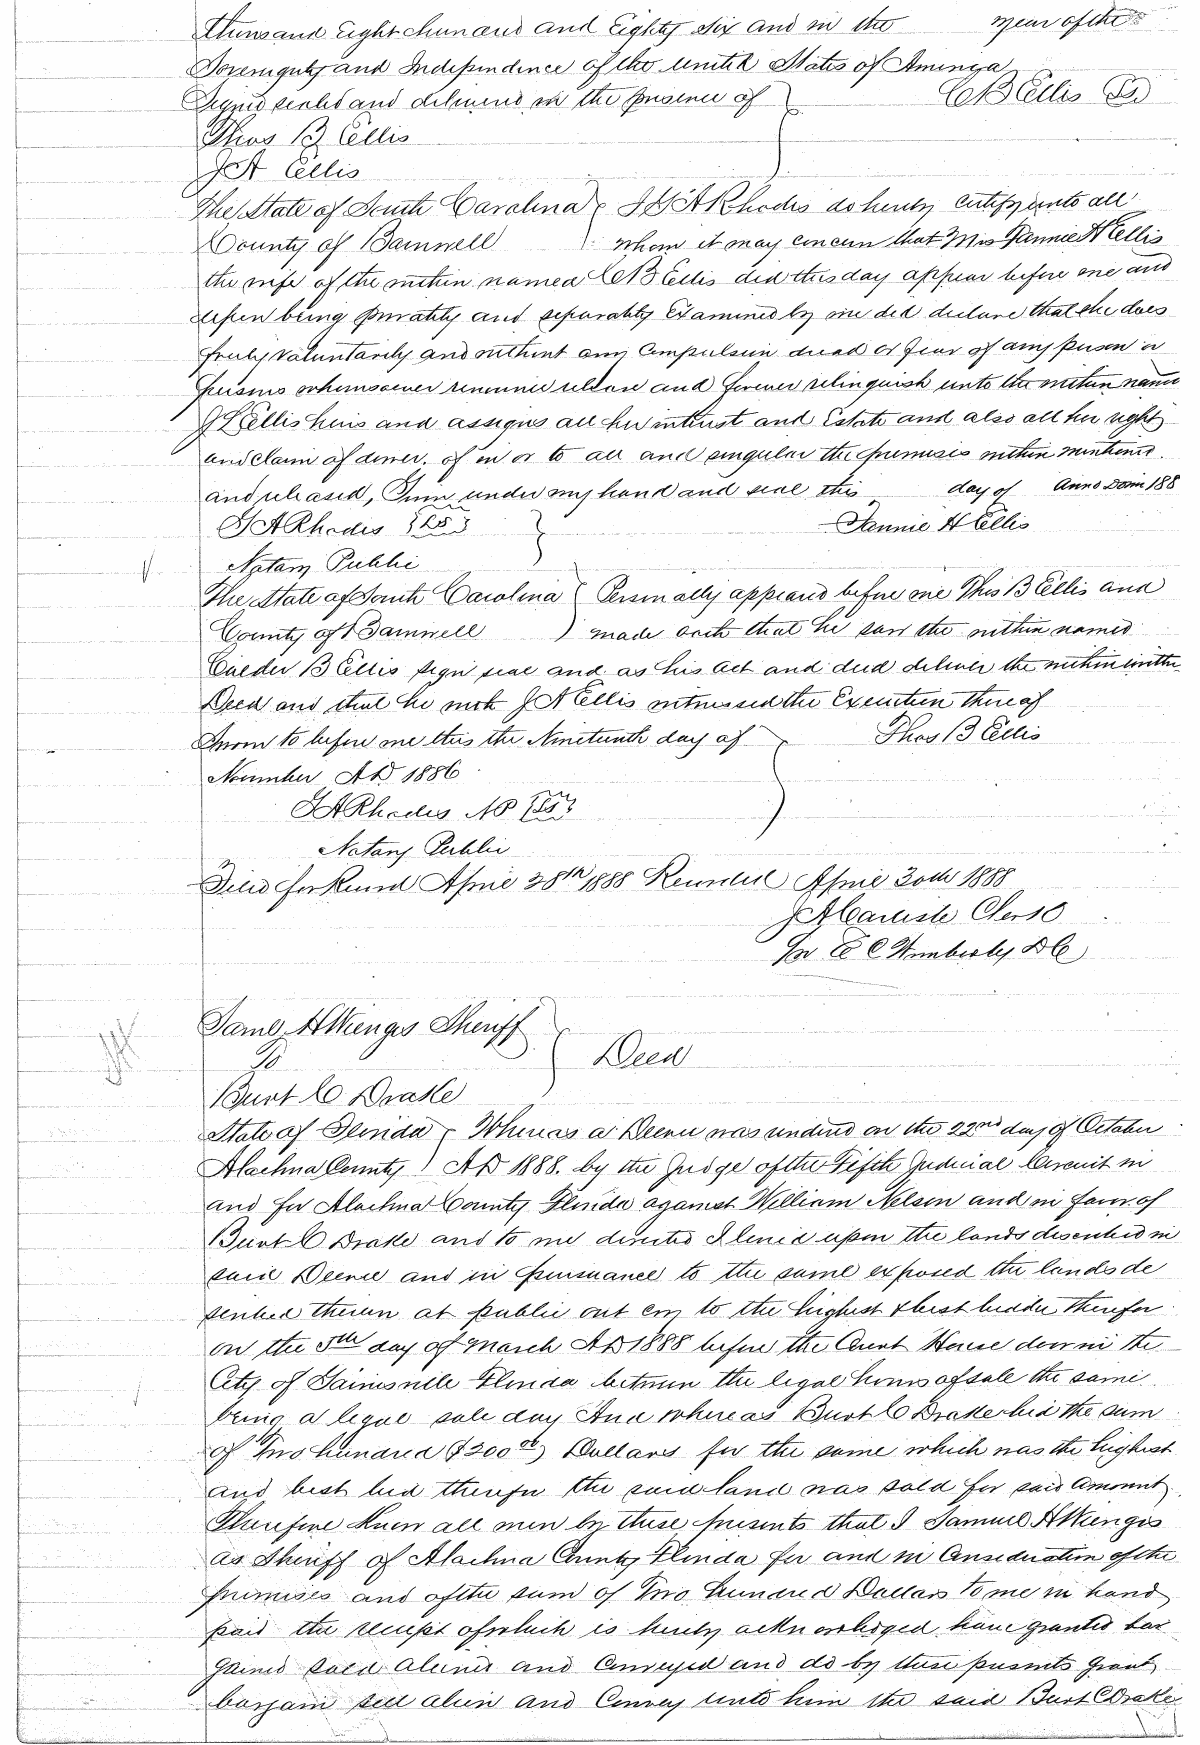 thousand Eight hundred and Eighty Six and in the year of the
Sovereignty and Independence of the United States of America
Signed sealed and delivered in the presence of C B Ellis
Thos B Ellis
J A Ellis
The State of South Carolina I A Rhodes do hereby certify unto all
County of Barnwell whom it may concern that Mrs Fannie H Ellis
the wife of the within named C B Ellis did this day appear before me and
upon being privately and separately Examined by me did declare that she does
freely voluntarily and without any Compulsion dread or fear of any person or
persons whomsoever renounce release and forever relinquish unto the within name
Ellis heirs and assigns all her intrust and Estate and also all her right
and Claim of dower. of in or to all and singular the premises within mentioned
and released, Given under my hand and seal this day of Anno Dom 188
A Rhodes LS Fannie H Ellis
Notary Public
The State of South Carolina Personally appeared before me Thos B Ellis and
County of Barnwell made oath that he saw the within named
B Ellis sign seal and as his act and deed deliver the within written
Deed and that he with J A Ellis witnessed the Execution thereof
Sworn to before me this the Nineteenth day of Thos B Ellis
November AD 1886
A Rhodes NP LS
Notary Public
Filed for Record April 28th 1888 Recorded April 30th 1888
J A Carlisle Clerk
Pr E C Wimberly DC
Saml H Wienges Sheriff
To Deed
Burt C Drake
State of Florida Whereas a Decree was rendered on the 22nd day of October
Alachua County AD 1888. by the Judge of the Fifth Judicial Circuit in
and for Alachua County Florida against William Nelson and in favor of
Burt C Drake and to me directed I levied upon the lands described in
said Decree and in pursuance to the same exposed the lands de
scribed therein at public out cry to the highest & best bidder therefor
on the 5th day of March AD 1888 before the Court House door in the
City of Gainesville Florida between the legal hours of sale the same
being a legal sale day And whereas Burt C Drake bid the sum
of Two hundred $200 00 Dollars for the same which was the highest
and best bid therefor the said land was sold for said Amount
Therefore Know all men by these presents that I Samuel H Wienges
as Sheriff of Alachua County Florida for and in Consideration of the
premises and of the sum of Two hundred Dollars to me in hand
paid the receipt of which is hereby acknowledged have granted bar
gained sold aliened and Conveyed and do by these presents Grant
bargain sell alien and Convey unto him the said Burt C Drake